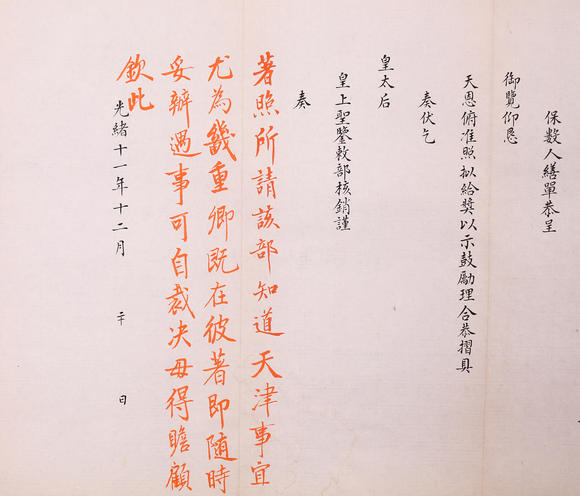 保数人繕單恭呈
御覽仰恳
天恩俯准照拟给奬以示鼓勵理合恭摺具
奏伏乞
皇太后
皇上聖鑒敕部核銷謹
奏
著照所請該部知道天津事宜
尤為畿重卿既在彼著即随時
妥辦遇事可自裁决毋得瞻顧
欽此
光緒十一年十二月 二十 日